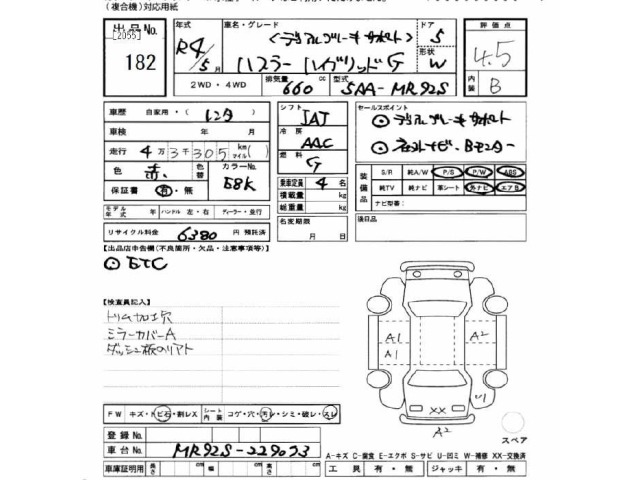 (複合機)対応用紙
出品No. 年式 車名・グレード ドア 評価点
[2055] <デュアルブレーキサポート> 5 4.5
182 R4/5月 ハスラー ハイブリッドG 形状 W
2WD・4WD 排気量 660 cc 型式 5AA-MR92S 内装 B
車歴 自家用・(レンタ) シフト IAT セールスポイント
車検 年 月 冷房 AAC ⊙デュアルブレーキサポート
走行 4万3千305 km(マイル) 燃料 G ⊙ ナビ、Bモニター
色 赤. 色替 カラーNo. 58K
保証書 有・無
乗車定員 4名
積載量 kg
総重量 kg
装備品 S/R 純A/W P/S P/W ABS
純TV 純ナビ 革シート 外ナビ エアB
ナビ型番:
モデル年式 年 ハンドル 左・右 ディーラー・並行
名変期限 月 日
後日品
リサイクル料金 6380 円 預託済
【出品店申告欄(不良箇所・欠品・注意事項等)】
⊙ETC
【検査員記入】
トリム加工穴
ミラーカバーA
ダッシュ板のリアト
A1 A2
A1
U1
XX
A2
スペア
FW キズ・トビ石・割レX シート内装 コゲ・穴・汚レ・シミ・破レ・スレ
登録No.
車台No. MR92S-229033
A-キズ C-腐食 E-エクボ S-サビ U-凹ミ W-補修 XX-交換済
車庫証明用 長さ cm 幅 cm 高さ cm 工具 有・無 ジャッキ 有・無